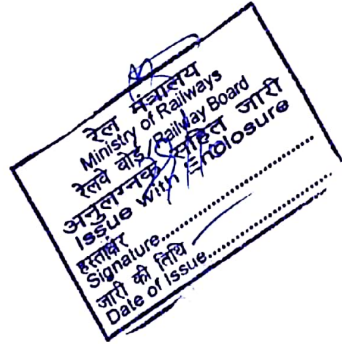 रेल मंत्रालय
Ministry of Railways
रेलवे बोर्ड/Railway Board
अनुलग्नक सहित जारी
Issue with Enclosure
हस्ताक्षर
Signature....................
जारी की तिथि
Date of Issue....................